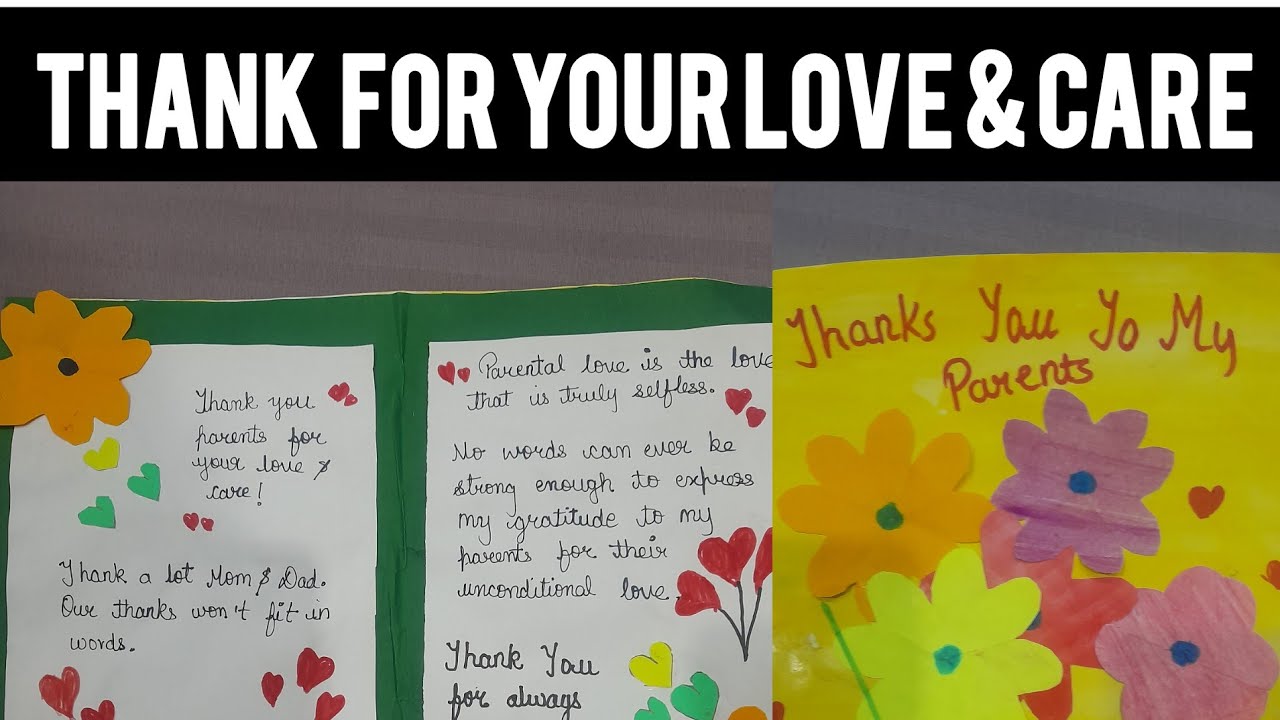 THANK FOR YOUR LOVE & CARE
Thank you
parents for
your love &
care!
Thank a lot Mom & Dad.
Our thanks won't fit in
words.
Parental love is the love
that is truly selfless.
No words can ever be
strong enough to express
my gratitude to my
parents for their
unconditional love.
Thank You
for always
Thanks You To My
Parents